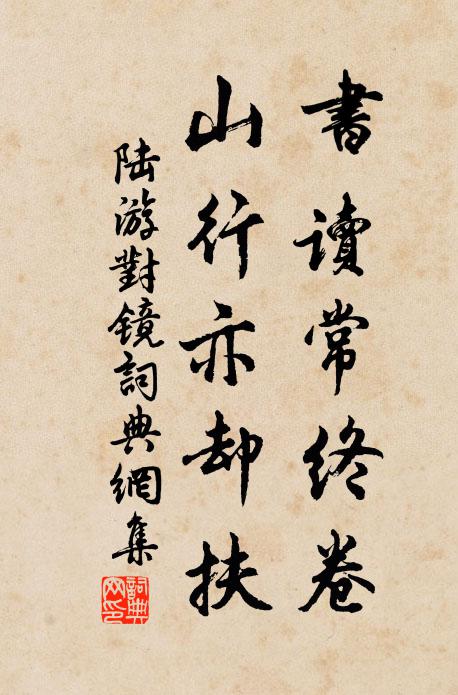 書讀常終卷
山行亦却扶
陸游對镜詞典網集
詞典网印